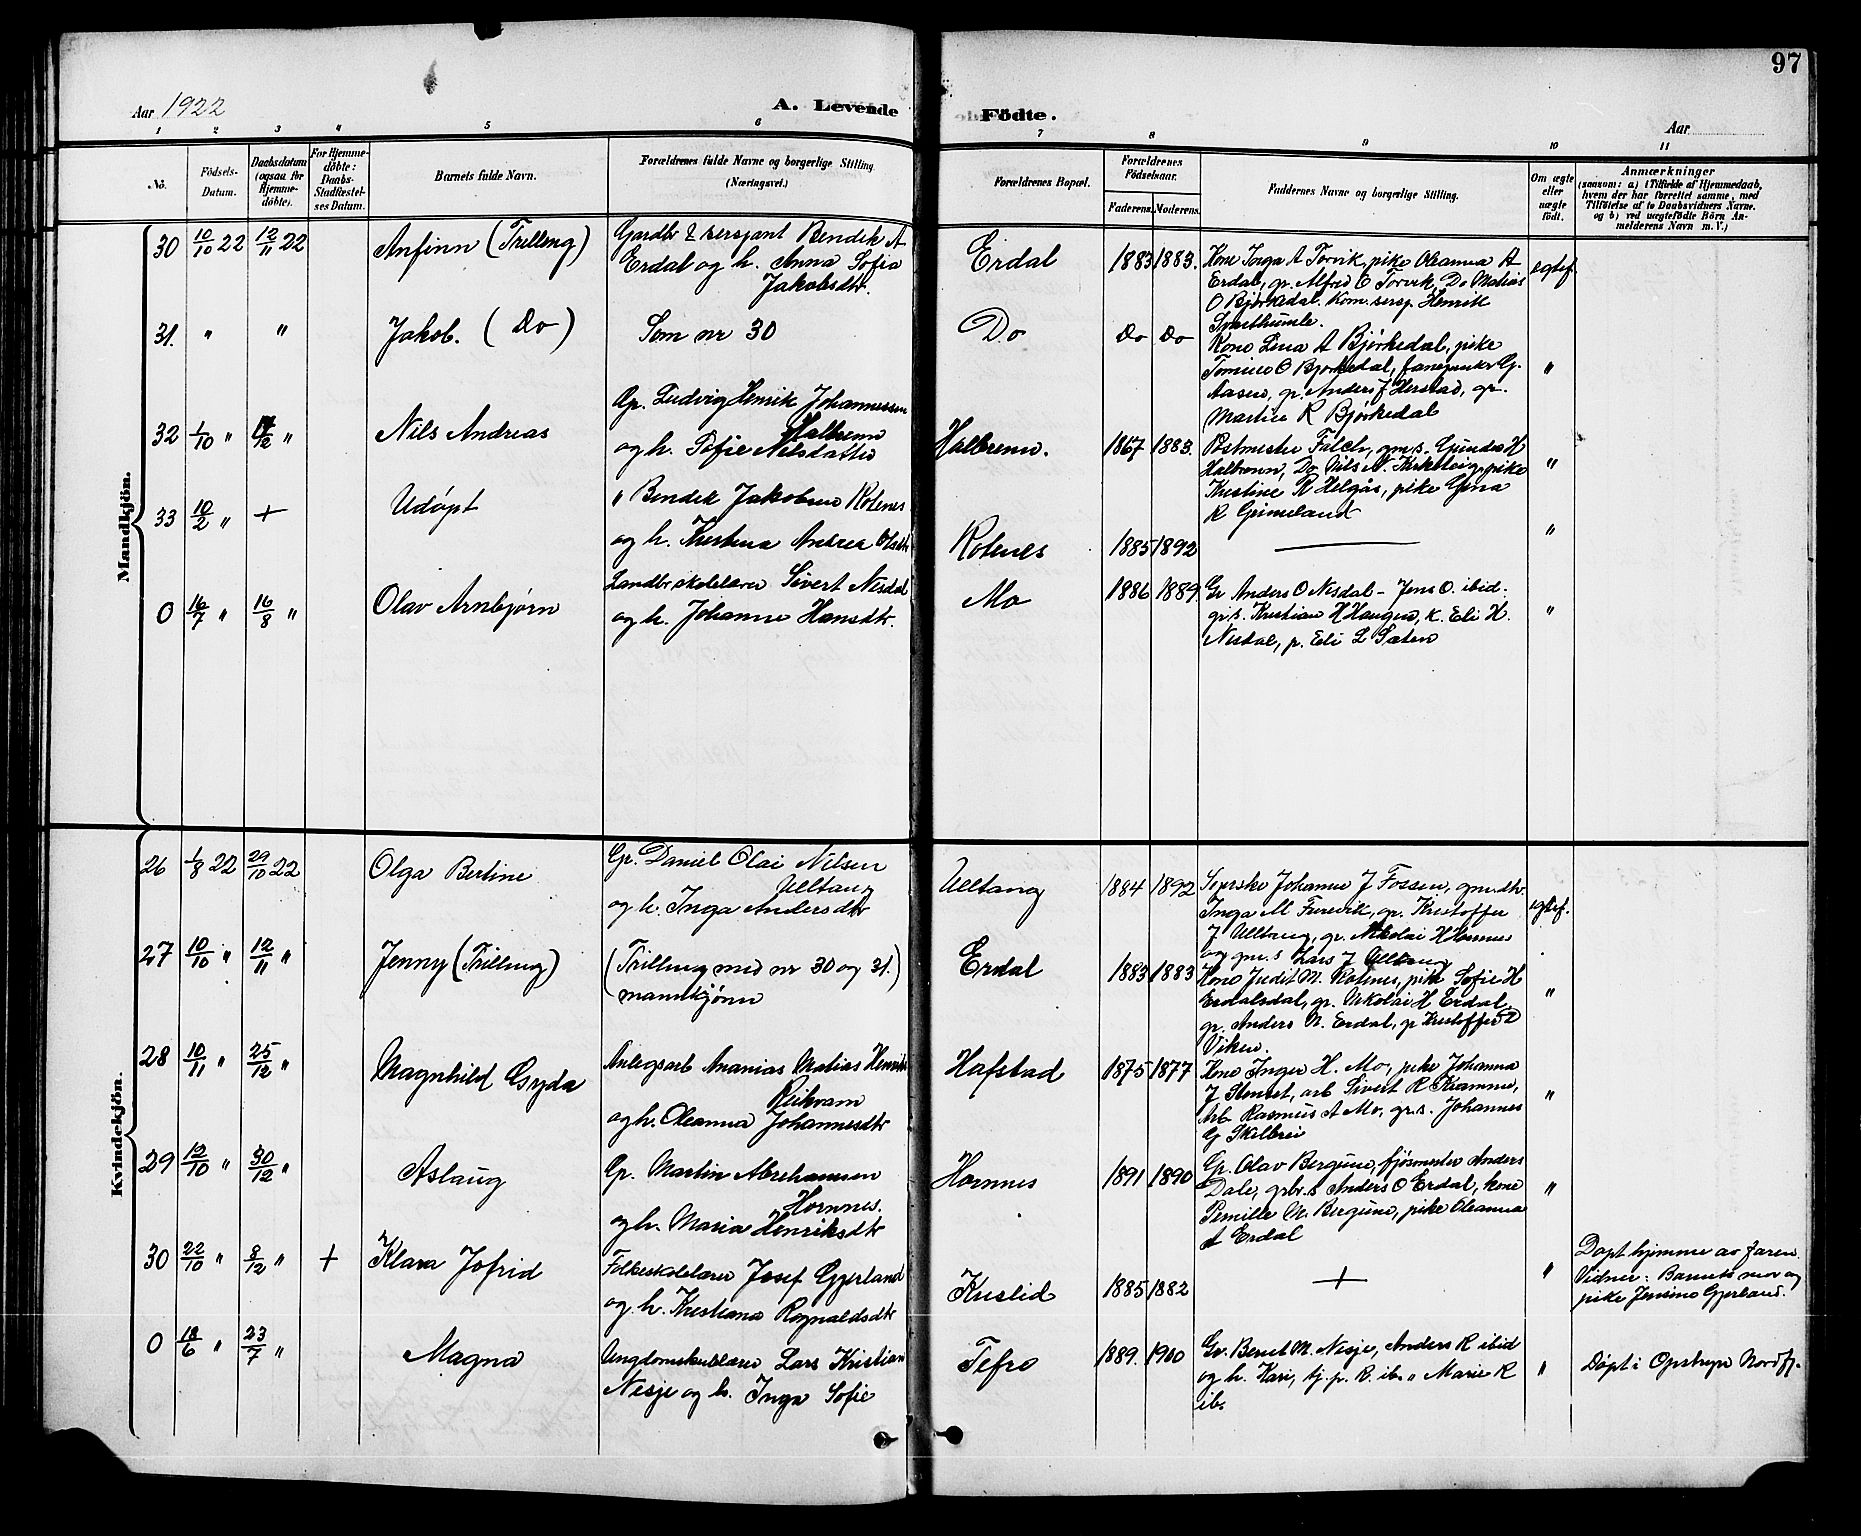 97
Aar 1922
A. Levende
Födte.
Aar
1 2 3 4 5 6 7 8 9 10 11
No.
Födsels-Datum.
Daabsdatum (ogsaa for Hjemme-döbte).
For Hjemme-döbte: Daabs-Stadfæstel-ses Datum.
Barnets fulde Navn.
Forældrenes fulde Navne og borgerlige Stilling. (Næringsvei.)
Forældrenes Bopæl.
Forældrenes Födselsaar.
Faderens. Moderens.
Faddernes Navne og borgerlige Stilling.
Om ægte eller uægte födt.
Anmærkninger
(saasom: a) i Tilfælde af Hjemmedaab,
hvem der har forrettet samme, med
Tilföielse af to Daabsvidners Navne.
og b) ved uægtefödte Börn An-
melderens Navn m. V.)
Mandkjön.
30 10/10 22 12/11 22 Anfinn (Trilling) Gardbr & sersjant Bendik A
Erdal og h. Anna Sofia
Jakobsdtr.
Erdal 1883 1883. Kone Inga A Torvik, pike Oleanna A
Erdal, gr. Alfred O Torvik, Do Matias
O Bjørkedal. Kom. sersj. Henrik
Svarthumle.
egtef.
31. " " Jakob. (Do) Som nr 30 Do Do Do
Kone Lina A Bjørkedal, pike
O Bjørkedal, fanejunker G.
Aasen, gr. Anders J Herstad, gr.
Martin R Bjørkedal
"
32 1/10 " /12 " Nils Andreas Gr. Ludvig Henrik Johannessen
Halbrenn
og h. Sofie Nilsdatter
Halbrenn. 1867 1883. Postmester Falch, gm.s. Gunder H
Halbrenn, Do Nils N. Kirkebøig, pike
Kristine R Helgås, pike Gina
R Grimeland
"
33 10/2 " + Udöpt " Bendik Jakobsen Rotenes
og h. Kristina Andrea Olsdtr
Rotenes 1885 1892 — "
0 16/7 " 16/8 " Olav Arnbjørn Landbr.skolelærer Sivert Nesdal
og h. Johanne Hansdtr.
Mo 1886 1889. Gr Anders O Nesdal - Jens O. ibid.
gr.s. Kristian H Haugen, k. Eli H.
Nesdal, p. Eli L Sæten
"
Kvindekjön.
26 1/8 22 29/10 22 Olga Bertine Gr. Daniel Olai Nilsen
Ulltang
og h. Inga Andersdtr
Ulltang 1884 1892 Johanne J Fossen, gmdtr
Inga M Furevik, gr. Kristoffer
J Ulltang, gr. Nikolai H Hornnes
og gm.s Lars J Ulltang
egtef.
27 10/10 " 12/11 " Jenny (Trilling) (Trilling med nr 30 og 31.)
mandkjønn
Erdal 1883 1883 Kone Judit M. Rotenes, pike Sofie H
Erdalsdal, gr. Nikolai H Erdal,
gr. Anders N. Erdal, gr Kristoffer D
Viken.
"
28 10/11 " 25/12 " Magnhild Gyda Anlegsarb Ananias Matias Henriks
Reikvam
og h. Oleanna Johannesdtr
Hafstad 1875 1877 Kone Inger H. Mo, pike Johanna
J Stenset, arb Sivert R Kvamme,
Arb. Rasmus A Mo, gr.s. Johannes
G Skilbrei
"
29 12/10 " 30/12 " Aslaug Gr. Martin Abrahamsen
Hornnes.
og h. Maria Henriksdtr
Hornnes 1891 1890 Gr. Olav Bergum, fjøsmester Anders
Dale, grbr.s Anders O Erdal, kone
Pernille M. Bergum, pike Oleanna
A Erdal
"
30 22/10 " 8/12 " + Klara Jofrid Folkeskolelærer Josef Gjerland
og h. Kristiana Rognaldsdtr
Kuslid 1885 1882 + " Døpt hjemme av faren.
Vidner: Barnets mor og
pike Jensine Gjerland.
0 18/6 " 23/7 " Magna Ungdomskulelærer Lars Kristian
Nesje og h. Inga Sofie
Tefre 1889. 1900 Gr. Bernt M. Nesje, Anders R ibid
og h. Kari, tj. p. R. ib. " Marie R
ib.
" Døpt i Opstryn Nordfj.